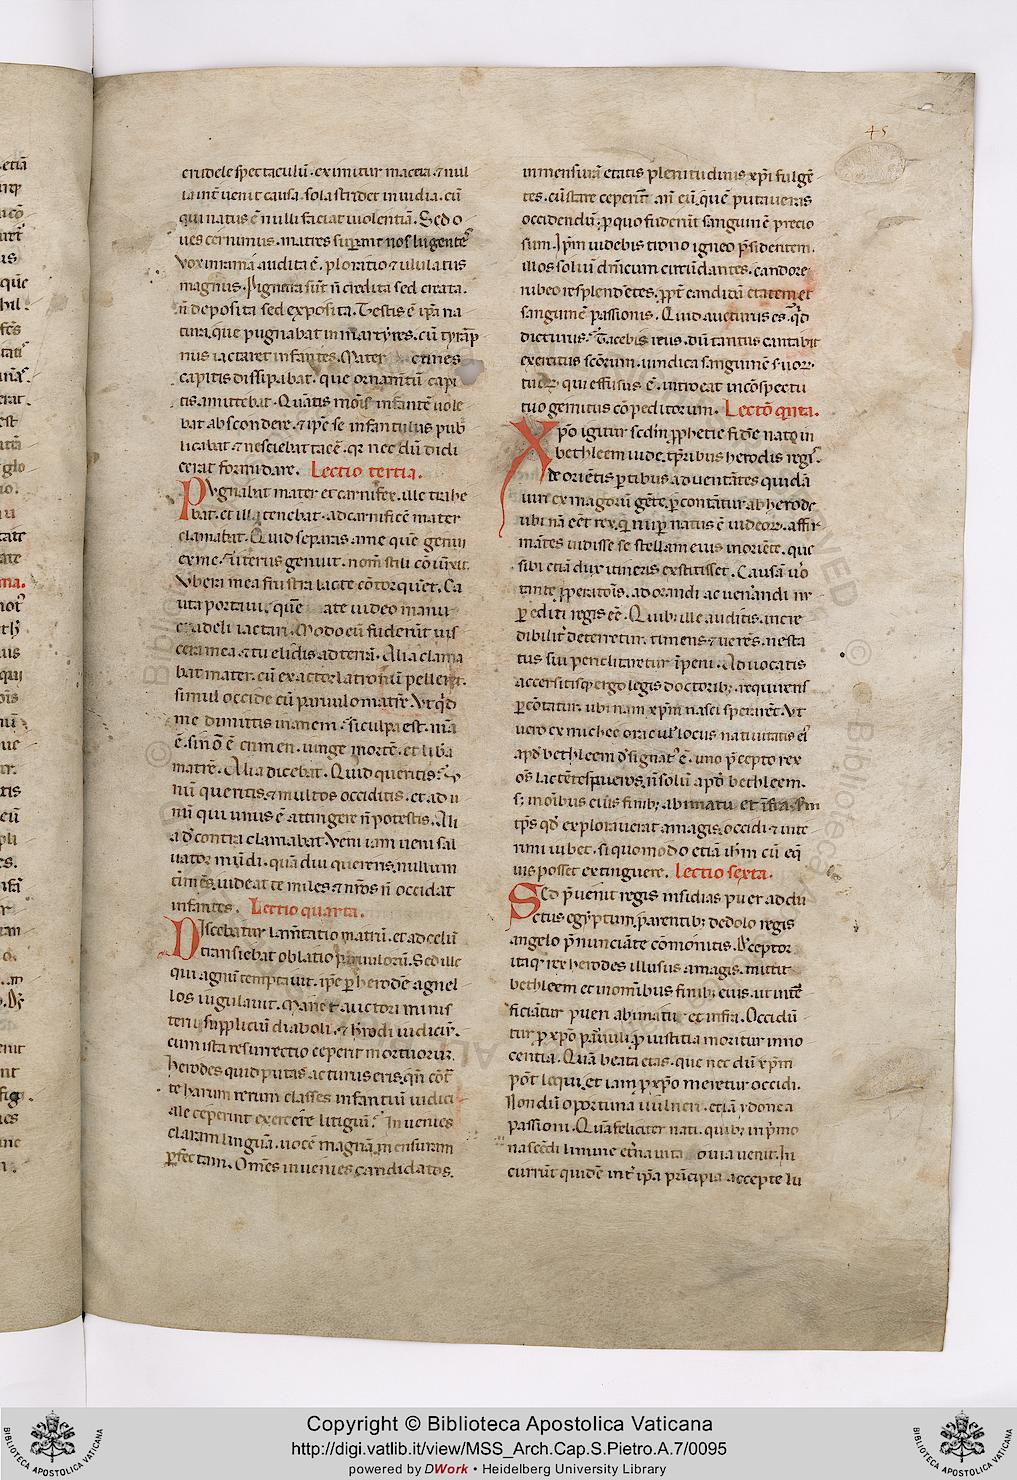 45
crudele spectaculũ. eximitur macera. ⁊ nul
la int̃uenit causa. sola stridet inuidia. cũ
qui natus ẽ nulli faciat uiolentiã. Sed o
ues cernimus. matres sup̃ant nos lugentes
vox in rama audita ẽ. ploratio ⁊ ululatus
magnus. Pignera sũt ñ credita sed creata.
ñ deposita sed exposita. Testis ẽ ip̃a na
tura. que pugnabat in martyres. cũ tyrãp
nus iactaret infantes. Mater crines
capitis dissipabat. que ornam̃tũ capi
tis amittebat. Quãtis mõis infantẽ uole
bat abscondere. ⁊ ip̃e se infantulus pub
licabat ⁊ nesciebat tacẽ. qr nec dũ didi
cerat formidare. Lectio tertia.
Pvgnabat mater et carnifex. ille trahe
bat. et illa tenebat. ad carnificẽ mater
clamabat. Quid separas a me quẽ genui
ex me.
Vbera mea frustra lacte cõtorquẽt. Ca
uta portaui. quẽ ate uideo manu
crudeli iactari. Modo eũ fuderũt uis
cera mea ⁊ tu elidis ad terrã. Alia clama
bat mater. cũ exactor latro
simul occide cũ paruulo matrẽ. Vt q̃d
me dimittis inanem. si culpa est. m̃a
ẽ. si nõ ẽ crimen. iunge mortẽ. et liba
matrẽ. Alia dicebat. Quid queritis.
nũ queritis ⁊ multos occiditis. et ad u
nũ qui unus ẽ attingere ñ potestis. Ali
a ꝺ̃ contra clamabat. Veni iam ueni sal
uator mũdi. quã diu quereris. nullum
tim̃es. uideat te miles ⁊ nr̃os ñ occidat
infantes. Lectio quarta.
Discebatur lam̃tatio matrũ. et ad celũ
transiebat oblatio paruulorũ. Sed ille
qui agnũ temptauit. ip̃e ꝑ herodẽ agnel
los iugulauit. Manet auctori minis
terii suppliciũ diaboli. ⁊ h̃rodi iudiciũ.
cum ista resurrectio ceperit mortuorũ.
herodes quid putas acturus eris. qñ cõt̃
te harum rerum classes infantiũ iudici
ale ceperint exercẽre litigiũ. Inuenies
claram linguã. uocẽ magnã. mensuram
ꝑfectam. Om̃es inuenies candidatos.
in mensurã etatis plenitudinis xp̃i fulgẽ
tes. cũ stare ceperint añ eũ. quẽ putaueras
occidendũ. ꝑ quo fuderũt sanguinẽ precio
sum. Ip̃m uidebis trono igneo p̃sidentem.
illos soliũ dñicum circũdantes. candore
niueo resplendẽtes. ꝓpt̃ candidã etatem et
sanguinẽ passionis. Quid aucturus es. q̃d
dicturus. Tacebis reus. dũ tantus cantabit
exercitus sc̃orum. uindica sanguinẽ s̃uorꝝ
tuorꝝ. qui effusus ẽ. introeat in cõspectu
tuo gemitus cõpeditorum. Lectõ qnta.
Xpo igitur sc̃dm ꝓphetie fidẽ nato in
bethleem iude. tp̃ribus herodis regis.
de oriẽtis ꝑtibus aduentãtes quidã
uiri ex magorũ gẽte. ꝑcontãtur ab herode
ubi nã eẽt rex. q̃ nup̃ natus ẽ iudeorꝝ. affir
mãtes uidisse se stellam eius in oriẽte. que
sibi etiã dux itineris extitisset. Causã u̾o
tante ꝓperitõis. ad orandi ac uen̾andi nr̃
ꝑ editi regis eẽ. Quib; ille auditis. incre
dibilit̃ deterretur. timens ⁊ uerẽs. ne sta
tus sui periclitaretur ĩperii. Aduocatis
accersitisq; ergo legis doctorib;. requirens
ꝑcõtatur. ubi nam xp̃m nasci sperarẽt. Vt
uero ex michee oraculo locus natiuitatis ei̾
apd̾ bethleem d̾signat̾ ẽ. uno p̃cepto rex
oẽs lactẽtes pueros. ñ solũ apd̾ bethleem.
s; in om̃ibus eius finib; a bimatu et infra. s̃m
tp̃s qd̾ explorauerat a magis. occidi ⁊ inte
rimi iubet. si quomodo etiã ih̃m cũ eq̃
uis posset extinguere. Lectio sexta.
Sed p̃uenit regis insidias puer addu
ctus egyptum. parentib; de dolo regis
angelo p̃nunciãte cõmonitis. D̾ceptor
itaq; rex herodes illusus a magis. mittit
bethleem et in om̃ibus finib; eius. ut int̃
ficiãtur pueri a bimatu et infra. Occidũ
tur ꝑ xp̃o paruuli. ꝑ iustitia moritur inno
centia. Quã beata etas. que nec dũ xp̃m
põt loqui. et iam ꝑ xp̃o meretur occidi.
Nondũ oportuna uulneri. etiã ydonea
passioni. Quã feliciter nati. quib; in p̃mo
nascẽdi limine et̃na uita obuia uenit. In
currũt quidẽ int̃ ip̃a principia accepte lu
Copyright © Biblioteca Apostolica Vaticana
http://digi.vatlib.it/view/MSS_Arch.Cap.S.Pietro.A.7/0095
powered by DWork • Heidelberg University Library